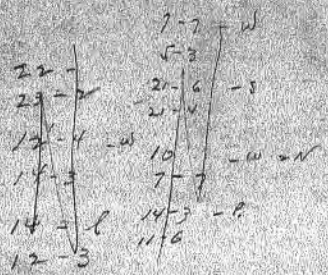 22 -
23 - 2
12 - 4 - W
14 - 3
14 - l
12 - 3
7 - 7 - W
5 - 3
21 - 6 - S
21 - 4
10 - W = N
7 - 7
14 - 3 - P.
11 - 6